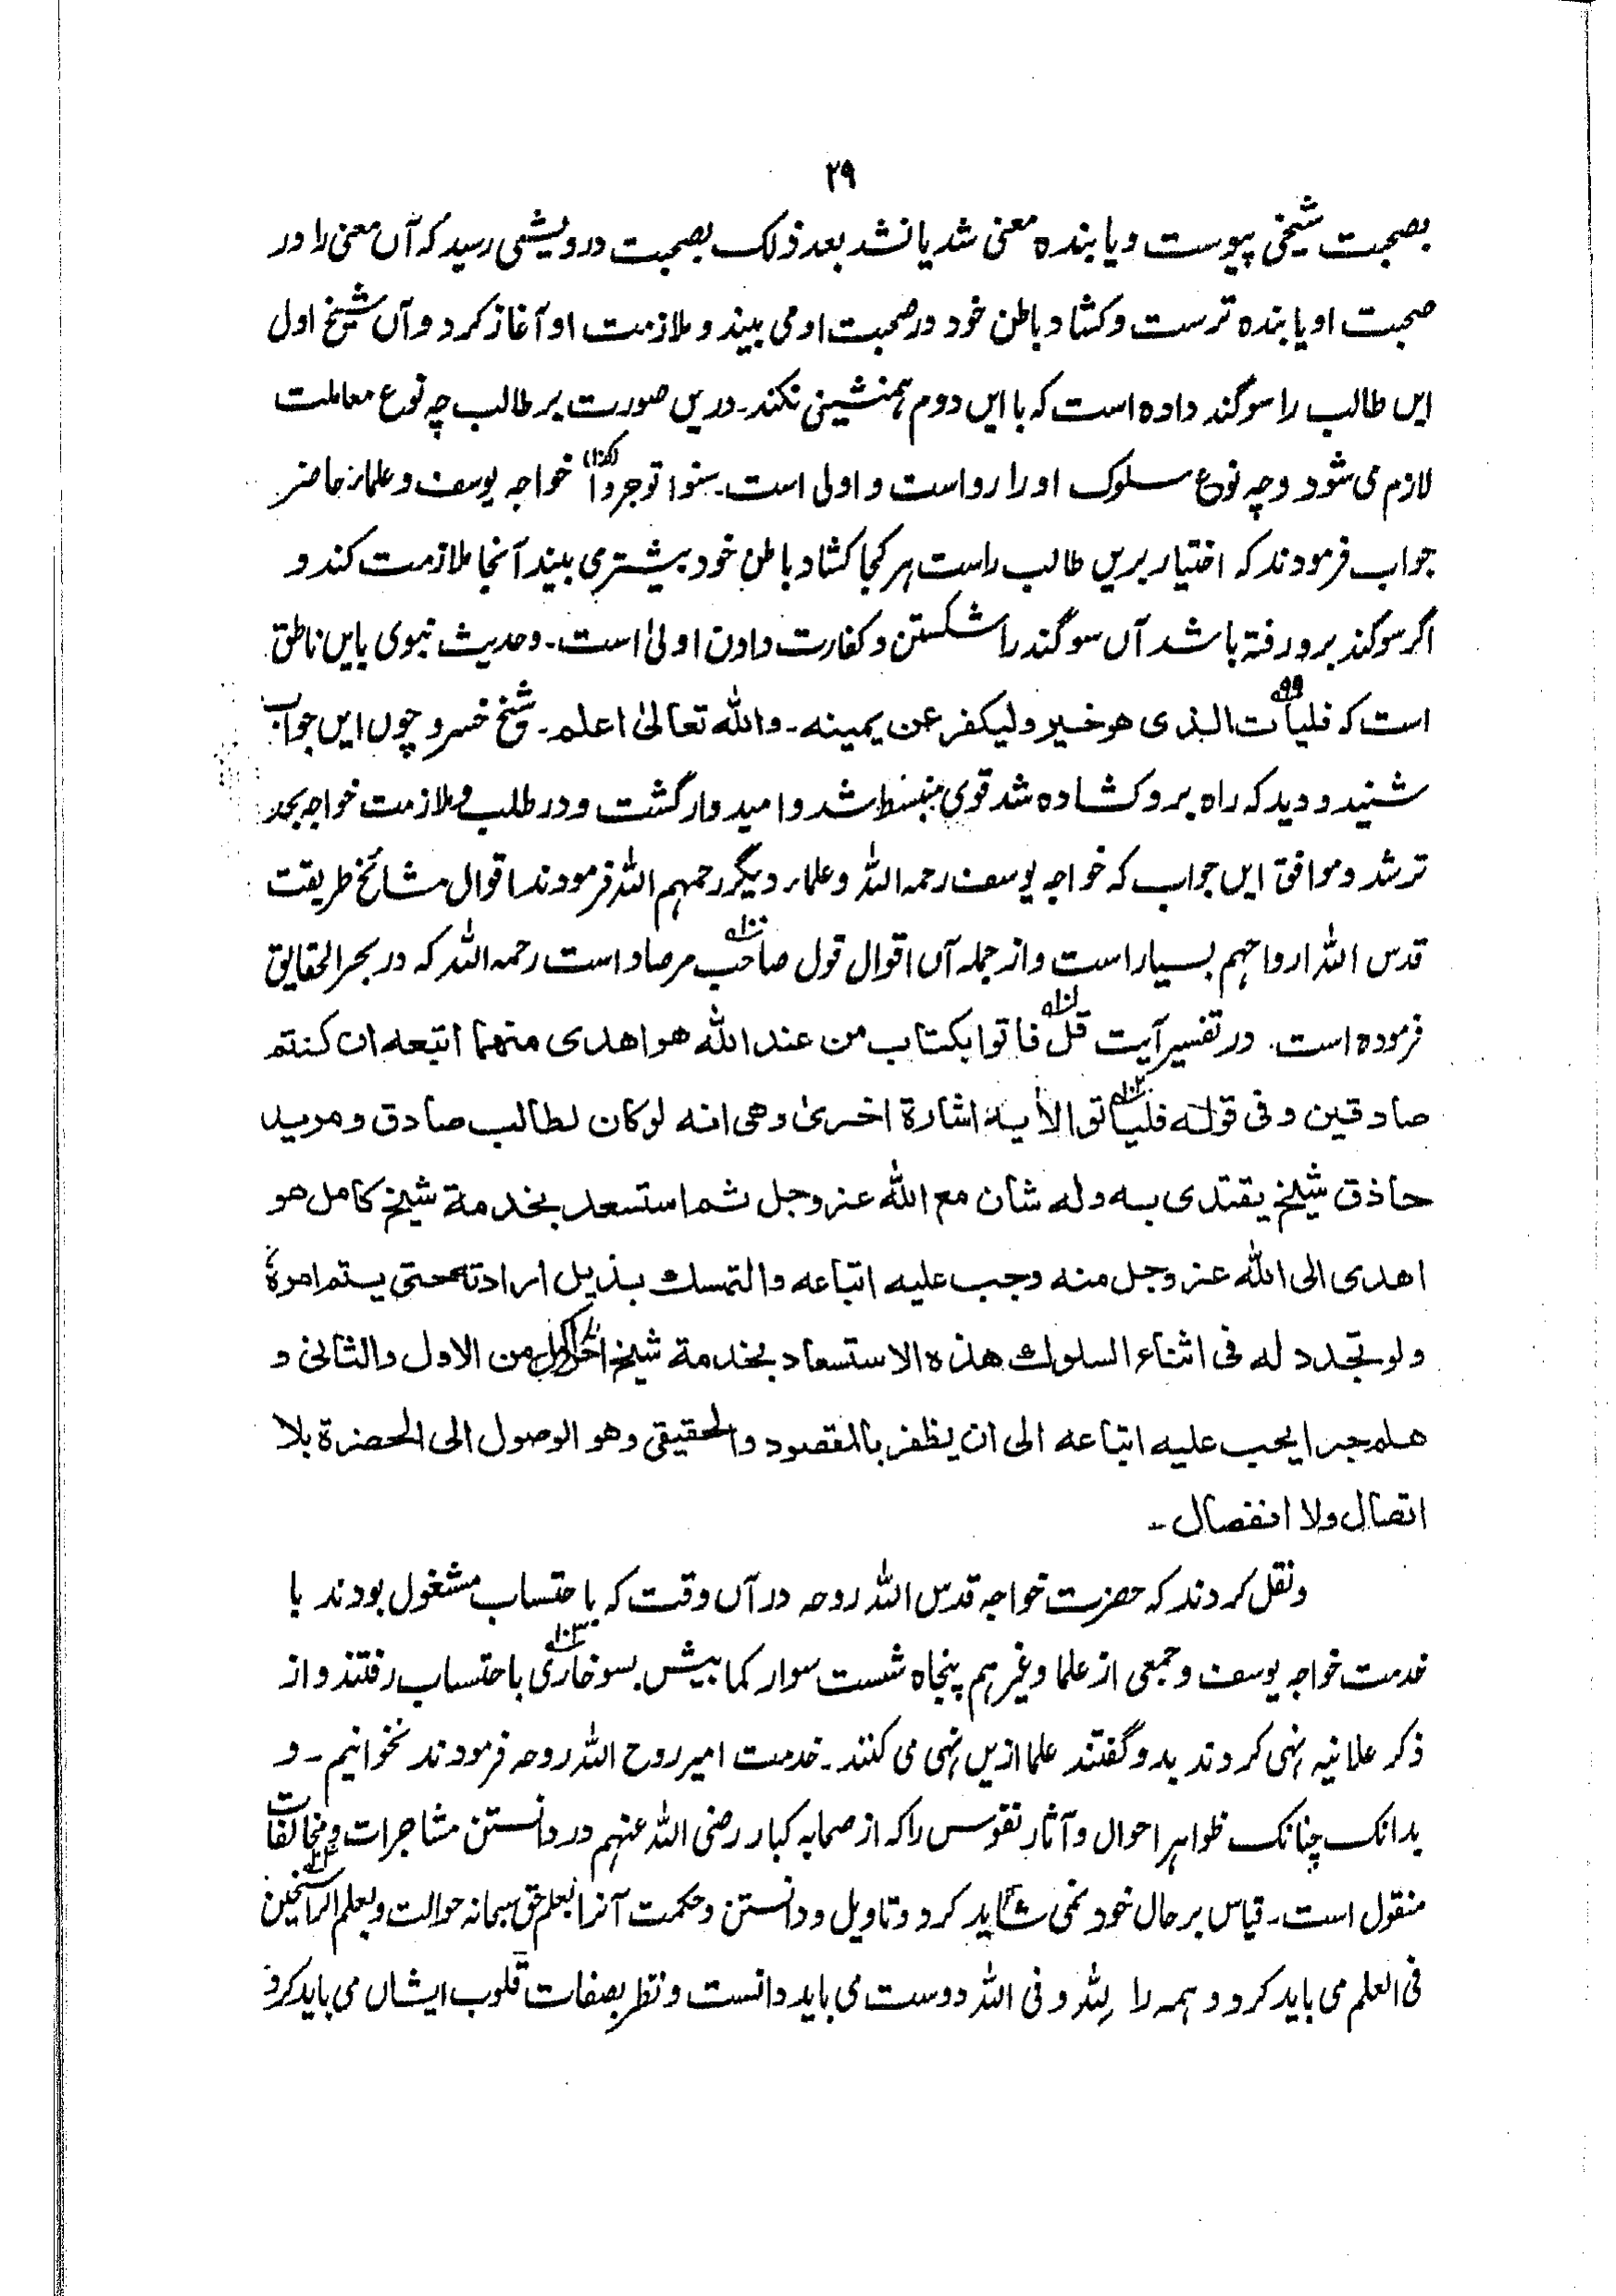 ۲۹
بصحبت شیخی پیوست و یا بنده معنی شد یا نشد بعد ذلک بصحبت درویشی رسید که آں معنی را در
صحبت او یا بنده ترست و کشاد باطن خود در صحبت او می بیند و ملازمت او آغاز کرد و آں شیخ اول
ایں طالب را سوگند داده است که با ایں دوم ہمنشینی نکند۔ دریں صورت بر طالب چه نوع معاملت
لازم می شود و چه نوع سلوک او را رواست و اولی است۔ بینوا توجروا (کذا) خواجه یوسف و علماء حاضر
جواب فرمودند که اختیار بریں طالب راست ہر کجا کشاد باطن خود بیشتر می بیند آنجا ملازمت کند و
اگر سوگند برو رفته باشد آں سوگند را شکستن و کفارت دادن اولیٰ است۔ و حدیث نبوی بایں ناطق
است که فلیأت ۹۹ الذی هو خیر ولیکفر عن یمینه۔ والله تعالیٰ اعلم۔ شیخ خسرو چوں ایں جواب
شنید و دید که راه برو کشاده شد قوی منبسط شد و امیدوار گشت و در طلب و ملازمت خواجه بجد
تر شد و موافق ایں جواب که خواجه یوسف رحمه الله و علماء دیگر رحمہم الله فرمودند اقوال مشائخ طریقت
قدس الله ارواحہم بسیار است و از جمله آں اقوال قول صاحب ۱۰۰ مرصاد است رحمه الله که در بحر الحقایق
فرموده است. در تفسیر آیت قل ۱۰۱ فاتوا بکتاب من عند الله هو اهدی منهما اتبعه ان کنتم
صادقین و فی قوله فلیاتوا ۱۰۲ الأیة اشارة اخریٰ وهی انه لو کان لطالب صادق و مرید
حاذق شیخ یقتدی به وله شان مع الله عز وجل ثم استسعد بخدمة شیخ کامل هو
اهدی الی الله عز وجل منه وجب علیه اتباعه والتمسک بذیل ارادته حتی یستم امرهٔ
ولو تجدد له فی اثناء السلوک هذه الاستسعاد بخدمة شیخ اخر اکمل من الاول والثانی و
هلم جرا یجب علیه اتباعه الی ان یظفر بالمقصود والحقیقی وهو الوصول الی الحضرة بلا
اتصال ولا انفصال۔
و نقل کردند که حضرت خواجه قدس الله روحه در آں وقت که با حتساب مشغول بودند با
خدمت خواجه یوسف و جمعی از علما و غیرہم پنجاه شست سوار کما بیش بسوخاری ۱۰۳ باحتساب رفتند و از
ذکر علانیه نہی کردند بدو گفتند علما ازیں نہی می کنند۔ خدمت امیر روح الله روحه فرمودند نخوانیم۔ و
بدانک چنانک ظواہر احوال و آثار نفوس را که از صحابه کبار رضی الله عنہم در دانستن مشاجرات و مخالفات
منقول است۔ قیاس بر حال خود نمی شاید کرد و تاویل و دانستن و حکمت آنرا بعلم حق سبحانه حوالت و بعلم الراسخین ۱۰۴
فی العلم می باید کرد و ہمه را لله و فی الله دوست می باید دانست و نظر بصفات قلوب ایشاں می باید کرد